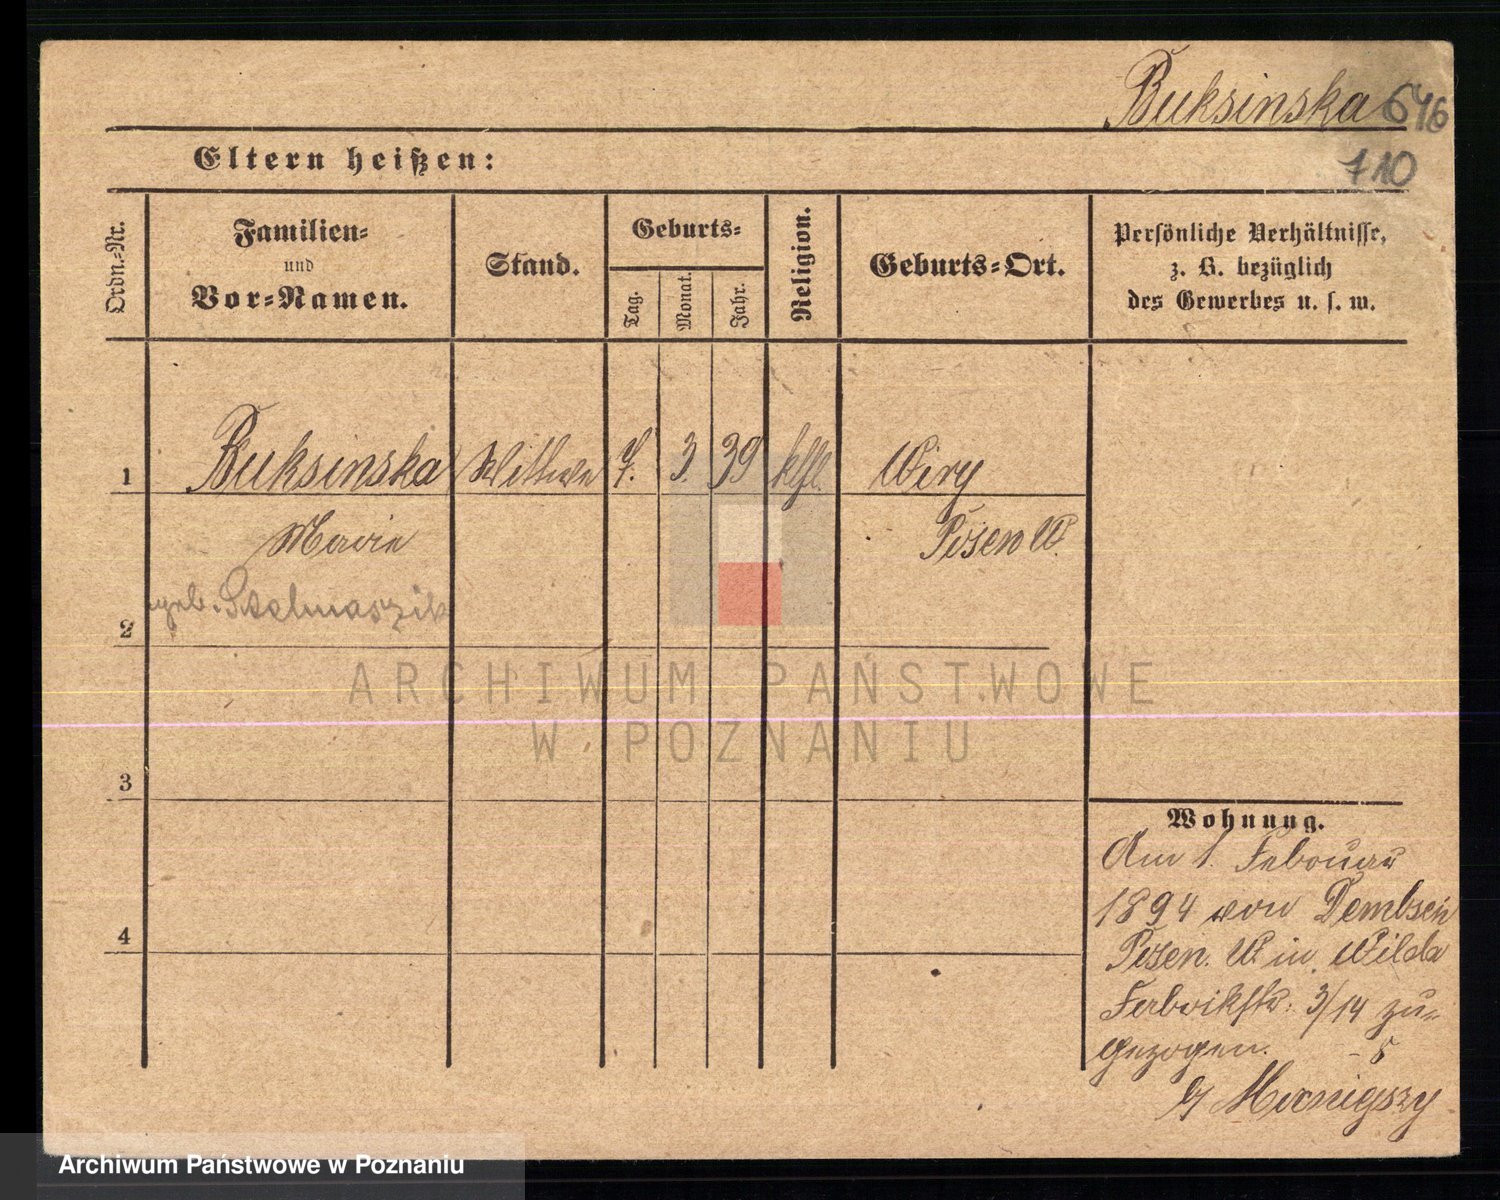 Buksinska 646
710
Eltern heißen:
Ordn.-Nr.
Familien-
und
Vor-Namen.
Stand.
Geburts-
Tag.
Monat.
Jahr.
Religion.
Geburts-Ort.
Persönliche Verhältnisse,
z. B. bezüglich
des Gewerbes u. s. w.
1
Buksinska Wittwe 7. 3. 39 kthl. Wiry
Marie Posen W.
geb. Stelmaszik
2
ARCHIWUM PAŃSTWOWE
W POZNANIU
3
Wohnung.
Am 1. Februar
1894 von Dembsen
Posen. W. in Wilda
Fabrikstr. 3/14 zu-
gezogen. - 5
4
Archiwum Państwowe w Poznaniu